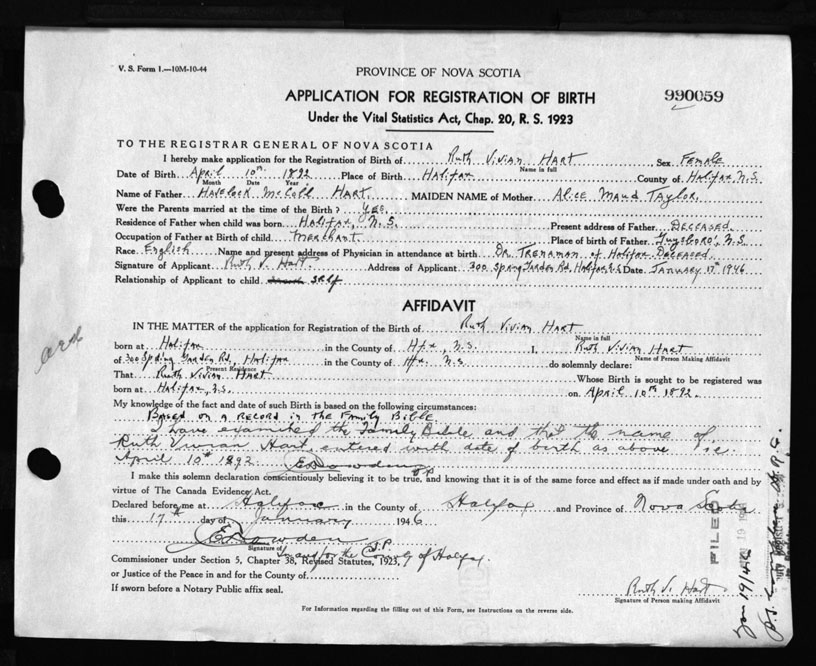 V. S. Form 1.—10M-10-44
PROVINCE OF NOVA SCOTIA
APPLICATION FOR REGISTRATION OF BIRTH 990059
Under the Vital Statistics Act, Chap. 20, R. S. 1923
TO THE REGISTRAR GENERAL OF NOVA SCOTIA
I hereby make application for the Registration of Birth of Ruth Vivian Hart Sex Female
Name in full
Date of Birth April 10th 1892 Place of Birth Halifax County of Halifax N.S.
Month Date Year
Name of Father Havelock McColl Hart. MAIDEN NAME of Mother Alice Maud Taylor.
Were the Parents married at the time of the Birth? Yes.
Residence of Father when child was born Halifax, N.S. Present address of Father Deceased.
Occupation of Father at Birth of child Merchant Place of birth of Father Guysboro', N.S
Race English Name and present address of Physician in attendance at birth Dr. Trenaman of Halifax. Deceased
Signature of Applicant Ruth V. Hart. Address of Applicant 300 Spring Garden Rd. Halifax N.S Date January 17th 1946
Relationship of Applicant to child Self
AFFIDAVIT
IN THE MATTER of the application for Registration of the Birth of Ruth Vivian Hart
Name in full
born at Halifax in the County of Hfx, N.S. I, Ruth Vivian Hart
Name of Person Making Affidavit
of 300 Spring Garden Rd., Halifax in the County of Hfx. N.S. do solemnly declare:
Present Residence
That Ruth Vivian Hart Whose Birth is sought to be registered was
born at Halifax, N.S. on April 10th 1892.
My knowledge of the fact and date of such Birth is based on the following circumstances:
Based on a record in the Family Bible
I have examined the Family Bible and that the name of
Ruth Vivian Hart, entered with date of birth as above vie.
April 10th 1892 JP
I make this solemn declaration conscientiously believing it to be true, and knowing that it is of the same force and effect as if made under oath and by
virtue of The Canada Evidence Act.
Declared before me at Halifax in the County of Halifax and Province of Nova Scotia
this 17th day of January 1946
Signature of J.P.
In and for the County of Halifax.
Commissioner under Section 5, Chapter 38, Revised Statutes, 1923,
or Justice of the Peace in and for the County of
If sworn before a Notary Public affix seal.
Ruth V. Hart
Signature of Person making Affidavit
For Information regarding the filling out of this Form, see Instructions on the reverse side.
FILED
Jan 19/46